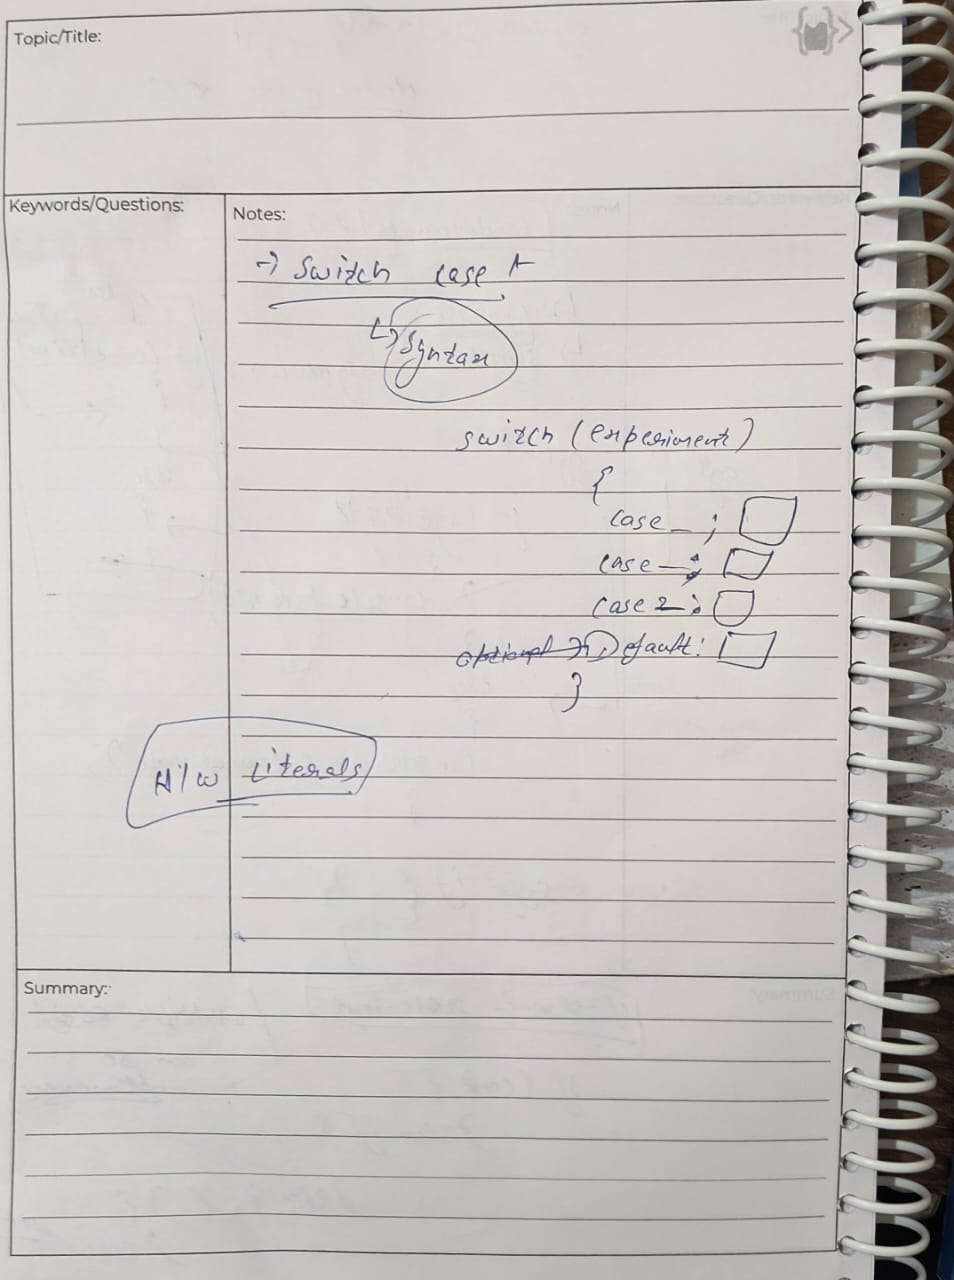 Topic/Title:
Keywords/Questions:
Notes:
→ Switch case
↳ Syntax
switch (experiment)
{
case _ ;
case _ ;
case 2 :
optional → Default:
}
H/W Literals
Summary: